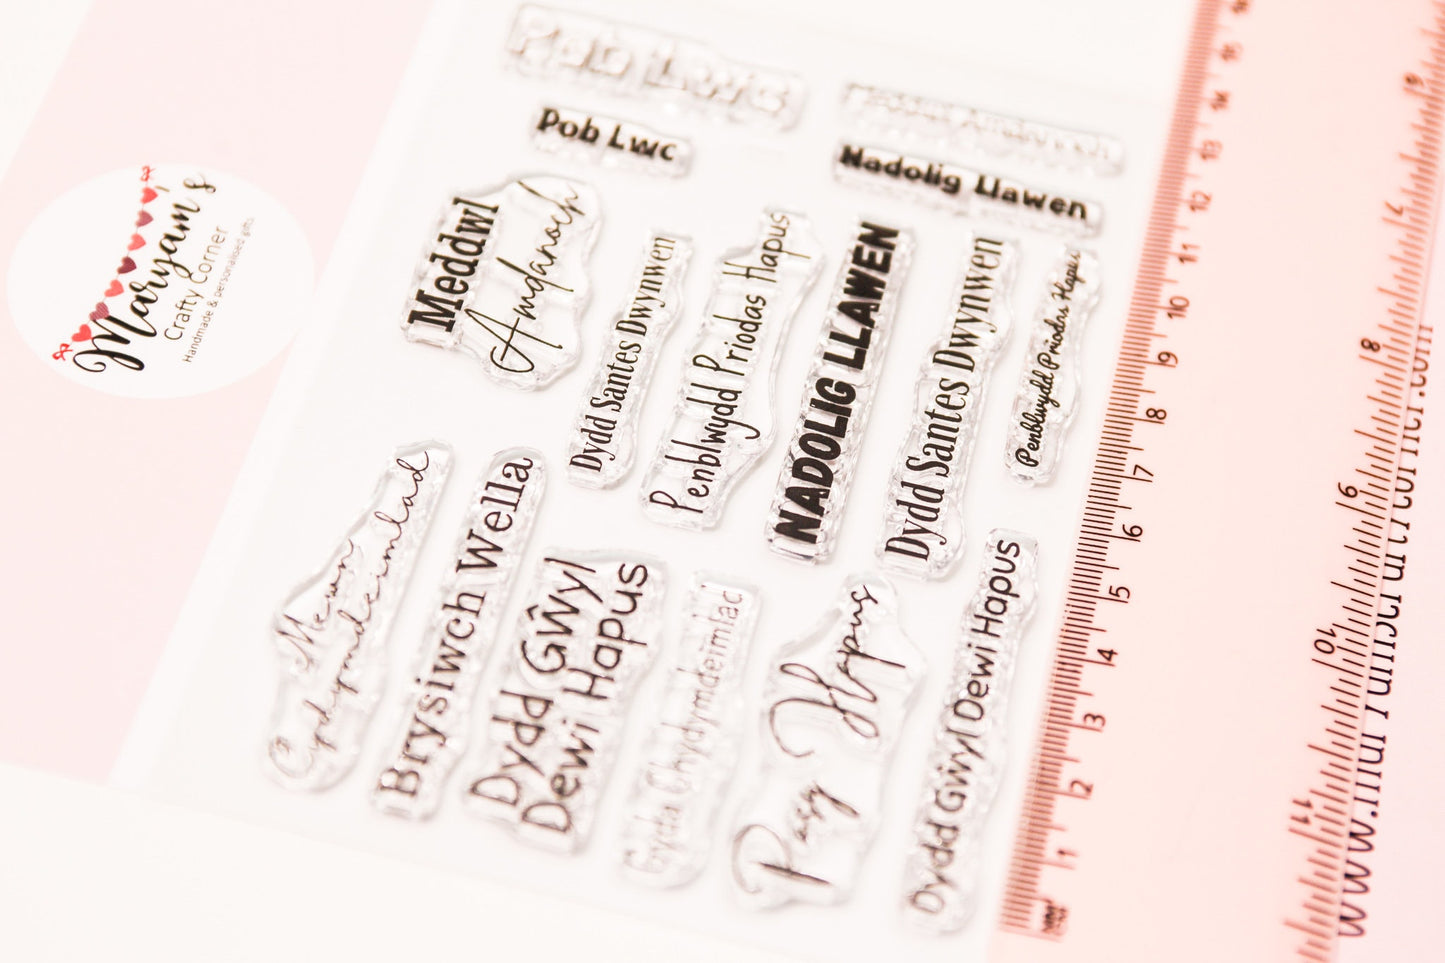 Pob Lwc
Pob Lwc
Nadolig Llawen
Meddwl
Amdanoch
Dydd Santes Dwynwen
Penblwydd Priodas Hapus
NADOLIG LLAWEN
Dydd Santes Dwynwen
Penblwydd Priodas Hapus
Mewn
Cydymdeimlad
Brysiwch Wella
Dydd Gŵyl
Dewi Hapus
Gyda Chydymdeimlad
Pasg Hapus
Dydd Gŵyl Dewi Hapus
Maryam's
Crafty Corner
Handmade & personalised gifts
16
15
14
13
12
11
10
9
8
7
6
5
4
3
2
1
7
8
9
10
11